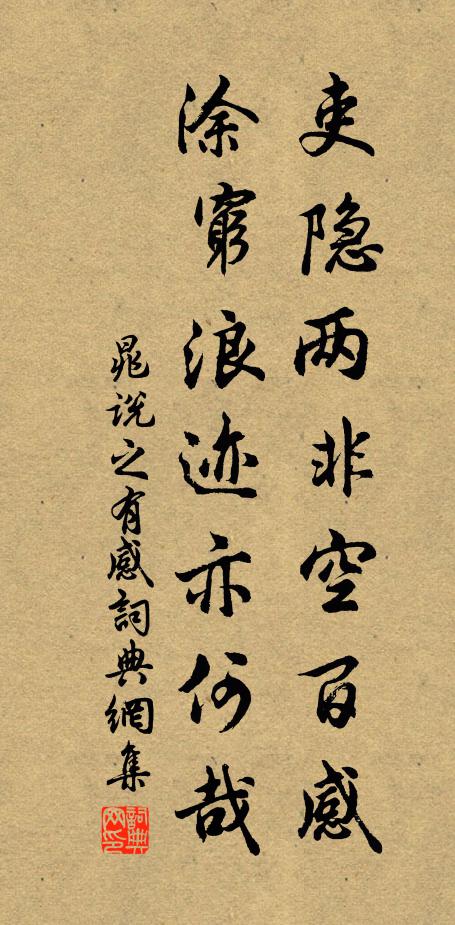 吏隐两非空百感
涂窮浪迹亦何哉
晁说之有感詞典網集
詞典网印